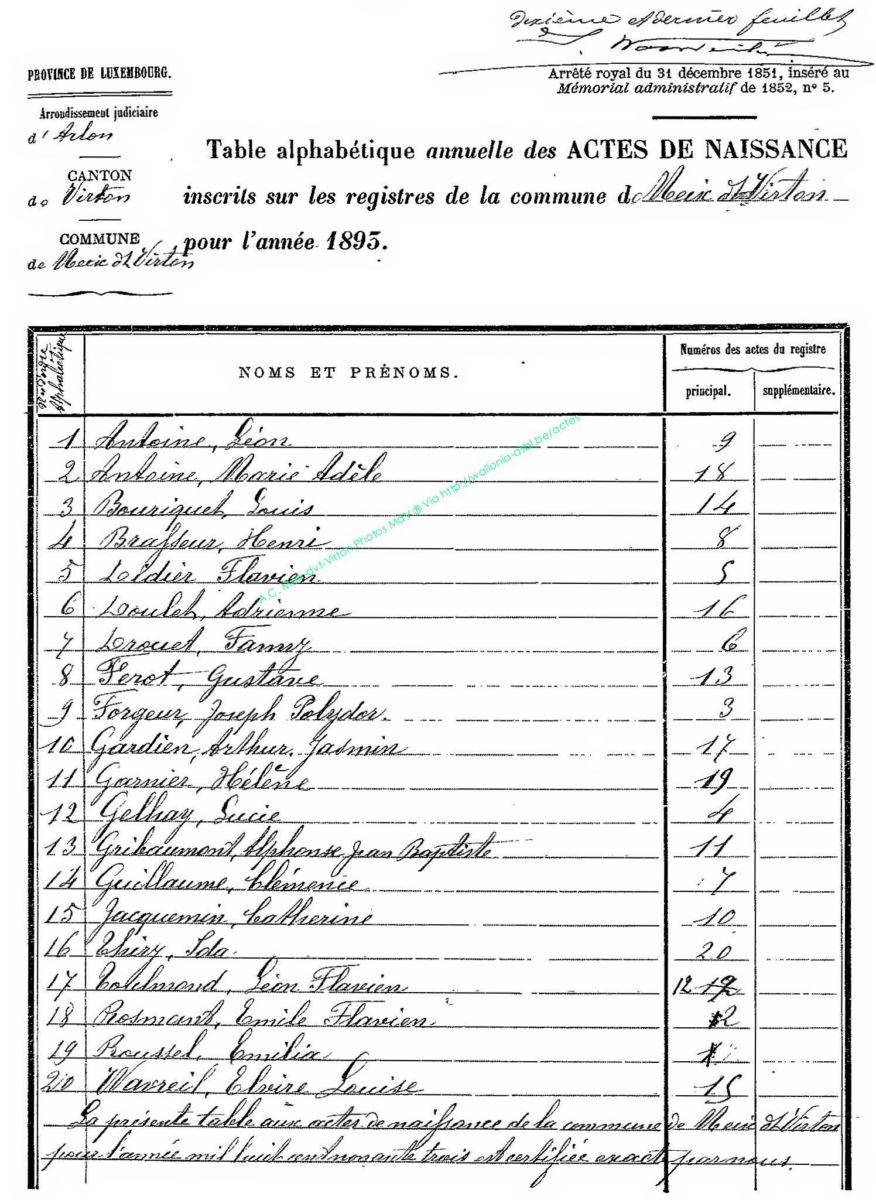 Dixième et dernier feuillet
PROVINCE DE LUXEMBOURG.
Arrêté royal du 31 décembre 1851, inséré au
Mémorial administratif de 1852, n° 5.
Arrondissement judiciaire
d'Arlon
CANTON
de Virton
COMMUNE
de Meix dt Virton
Table alphabétique annuelle des ACTES DE NAISSANCE
inscrits sur les registres de la commune de Meix dt Virton
pour l'année 1893.
Nos d'ordre Alphabétique
NOMS ET PRÉNOMS.
Numéros des actes du registre
principal. supplémentaire.
1 Antoine, Léon 9
2 Antoine, Marie Adèle 18
3 Bouriquet, Louis 14
4 Brasseur, Henri 8
5 Dédier Flavien 5
6 Doulet, Adrienne 16
7 Drouet, Fanny 6
8 Ferot, Gustave 13
9 Forgeur, Joseph Polydor. 3
10 Gardien, Arthur. Jasmin 17
11 Garnier, Hélène 19
12 Gelhay, Lucie 4
13 Gribaumont, Alphonse Jean Baptiste 11
14 Guillaume, Clémence 7
15 Jacquemin, Catherine 10
16 Thiry, Ida. 20
17 Léon Flavien 12 12
18 Rosmant, Emile Flavien 2
19 Roussel, Emilia 1
20 Wavreil, Elvire Louise 15
La présente table aux actes de naissance de la commune de Meix dt Virton
pour l'année mil huit cent nonante trois est certifiée exacte par nous.
A.C. Meix-dvt-Virton Photos MaV @ Via http://wallonia-asbl.be/actes